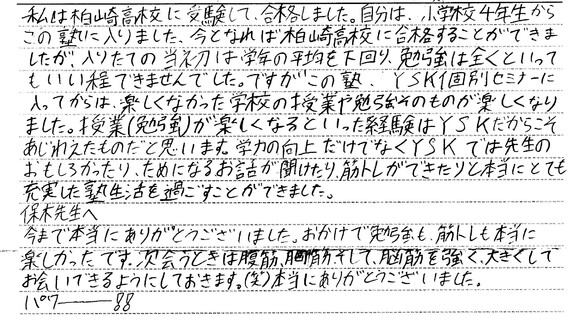 私は柏崎高校に受験して、合格しました。自分は、小学校4年生から
この塾に入りました。今となれば柏崎高校に合格することができま
したが、入りたての当初は学年の平均を下回り、勉強は全くといって
もいい程できませんでした。ですがこの塾、YSK個別セミナーに
入ってからは、楽しくなかった学校の授業や勉強そのものが楽しくなり
ました。授業(勉強)が楽しくなるといった経験はYSKだからこそ
あじわえたものだと思います。学力の向上だけでなくYSKでは先生の
おもしろかったり、ためになるお話が聞けたり、筋トレができたりと本当にとても
充実した塾生活を過ごすことができました。
保木先生へ
今まで本当にありがとうございました。おかげで勉強も、筋トレも本当に
楽しかったです。次会うときは腹筋、胸筋そして、脳筋を強く、大きくして
お会いできるようにしておきます。(笑)本当にありがとうございました。
パワー